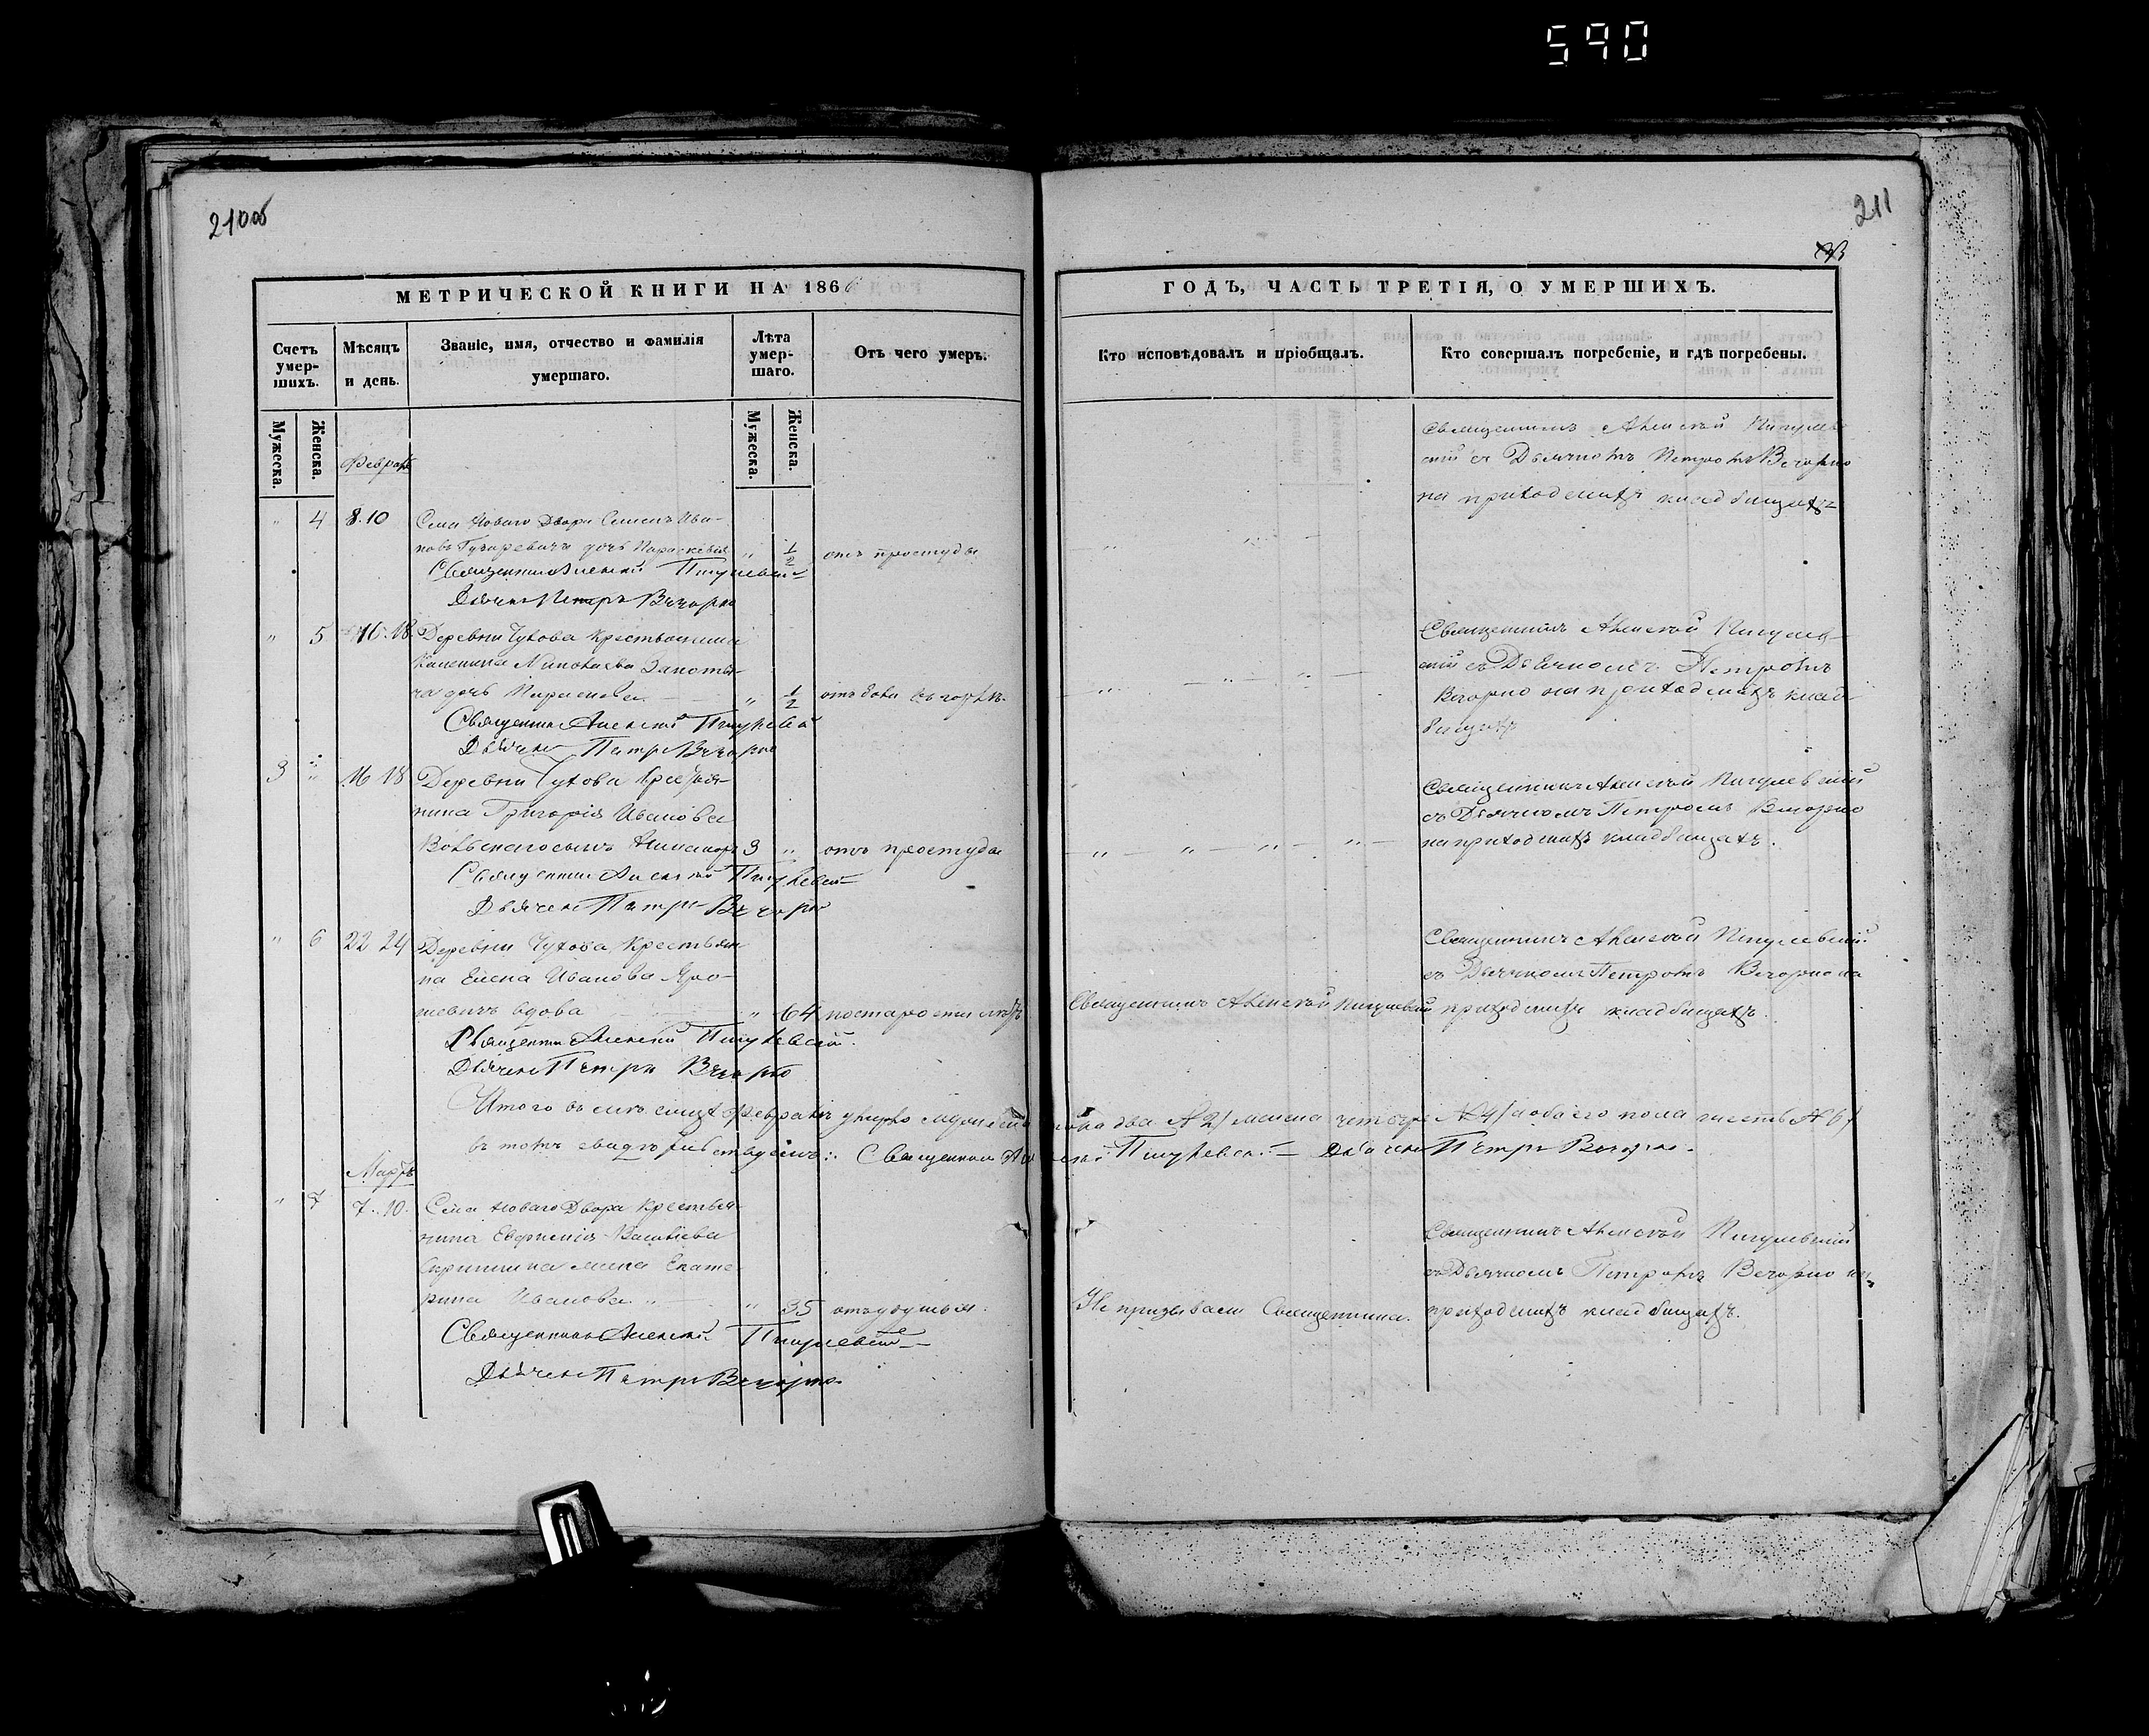 590
210об
211
МЕТРИЧЕСКОЙ КНИГИ НА 1866
ГОДЪ, ЧАСТЬ ТРЕТІЯ, О УМЕРШИХЪ.
Счетъ умершихъ.
Мѣсяцъ и день.
Званіе, имя, отчество и фамилія умершаго.
Лѣта умершаго.
Отъ чего умеръ.
Кто исповѣдовалъ и пріобщалъ.
Кто совершалъ погребеніе, и гдѣ погребены.
Мужеска.
Женска.
Мужеска.
Женска.
Февраль
Священникъ Алексѣй Пигулев-
скій съ Дьячкомъ Петромъ Вечорко
на приходскихъ кладбищахъ
" 4 8. 10 Села Новаго Двора Семенъ Ива-
новъ дочь Параскевія " 1/2 отъ простуды
Священникъ Алексѣй Пигулевскій
Дьячекъ Петръ Вечорко
" 5 16. 18 Деревни Чухова крестьянина
дочь " 1/2 отъ боли въ горлѣ.
Священникъ Алексѣй Пигулевскій
Дьячекъ Петръ Вечорко
Священникъ Алексѣй Пигулев-
скій съ Дьячкомъ Петромъ
Вечорко на приходскихъ клад-
бищахъ
3 " 16 18 Деревни Чухова крестья-
нина Григорія Иванова
сынъ Никаноръ 3 " отъ простуды
Священникъ Алексѣй Пигулевскій
Дьячекъ Петръ Вечорко
Священникъ Алексѣй Пигулевскій
съ Дьячкомъ Петромъ Вечорко
на приходскихъ кладбищахъ.
" 6 22 24 Деревни Чухова крестьян-
ка Елена Иванова Яро-
шевичъ вдова " 64 по старости лѣтъ
Священникъ Алексѣй Пигулевскій.
Дьячекъ Петръ Вечорко
Священникъ Алексѣй Пигулевскій
Священникъ Алексѣй Пигулевскій
съ Дьячкомъ Петромъ Вечорко на
приходскихъ кладбищахъ.
Итого въ мѣсяцѣ Февралѣ умерло мужеска пола два № 2/ женска четыре № 4/ а обоего пола шесть № 6/
въ томъ свидѣтельствуемъ: Священникъ Алексѣй Пигулевскій Дьячекъ Петръ Вечорко.
Мартъ
" 7 7. 10. Села Новаго Двора крестья-
нина Васильева
жена Екате-
рина Иванова " 35 отъ удушья.
Священникъ Алексѣй Пигулевскій
Дьячекъ Петръ Вечорко
Не призывали Священника.
Священникъ Алексѣй Пигулевскій
съ Дьячкомъ Петромъ Вечорко на
приходскихъ кладбищахъ.